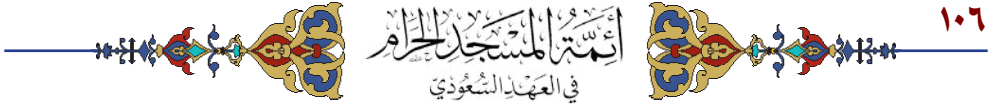 ١٠٦
أئمة المسجد الحرام
في العهد السعودي